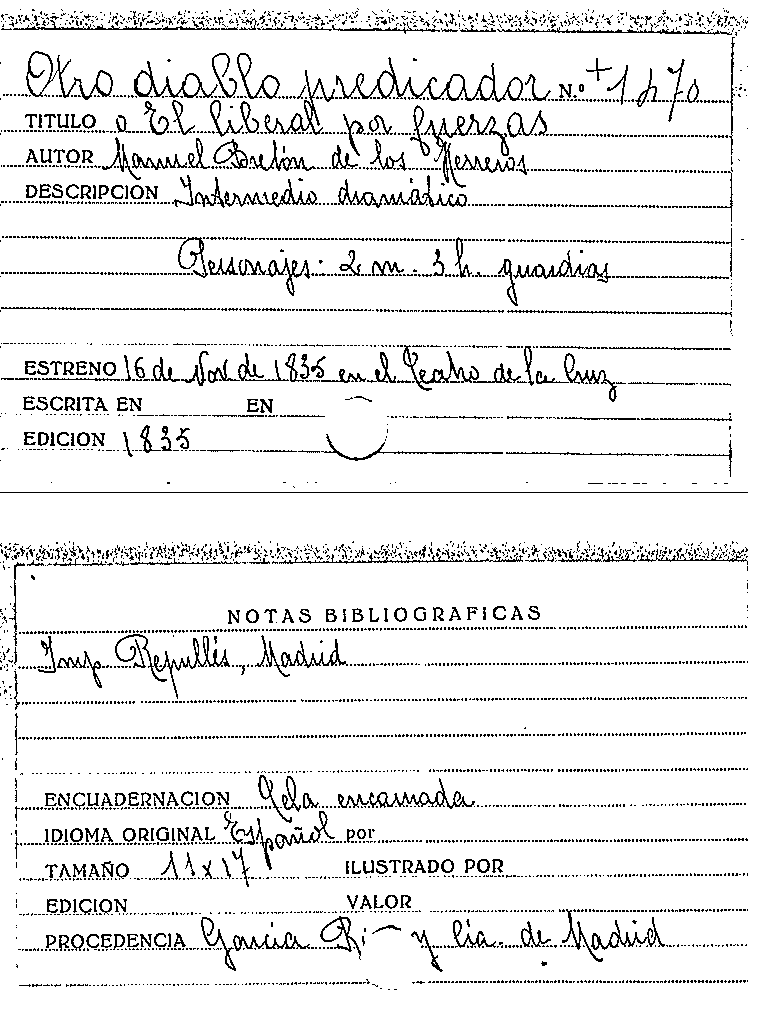 Otro diablo predicador N.º +1470
TITULO o El liberal por fuerzas
AUTOR Manuel Bretón de los Herreros
DESCRIPCION Intermedio dramático
Personajes: 2 m. 3 h. guardias
ESTRENO 16 de Nov. de 1835 en el Teatro de la Cruz
ESCRITA EN EN
EDICION 1835
NOTAS BIBLIOGRAFICAS
Imp Repullés, Madrid
ENCUADERNACION Tela encarnada
IDIOMA ORIGINAL Español por
TAMAÑO 11x17 ILUSTRADO POR
EDICION VALOR
PROCEDENCIA García y Cía. de Madrid